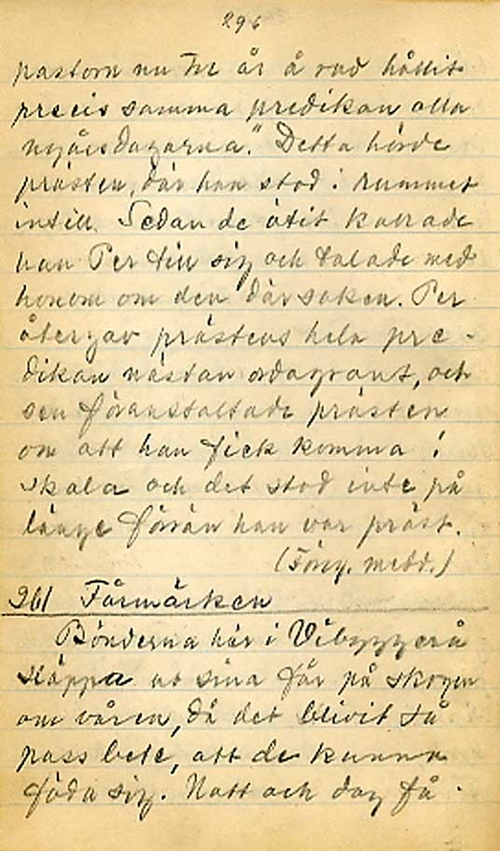 296
pastorn nu tre år å rad hållit
precis samma predikan alla
nyårsdagarna." Detta hörde
prästen, där han stod i rummet
intill. Sedan de ätit kallade
han Per till sig och talade med
honom om den där saken. Per
återgav prästens hela pre-
dikan nästan ordagrant, och
sen föranstaltade prästen
om att han fick komma i
skola och det stod inte på
länge förrän han var präst.
(Förg. medd.)
261 Fårmärken
Bönderna här i Vibyggerå
släppa ut sina får på skogen
om våren, då det blivit så
pass bete, att de kunna
föda sig. Natt och dag få